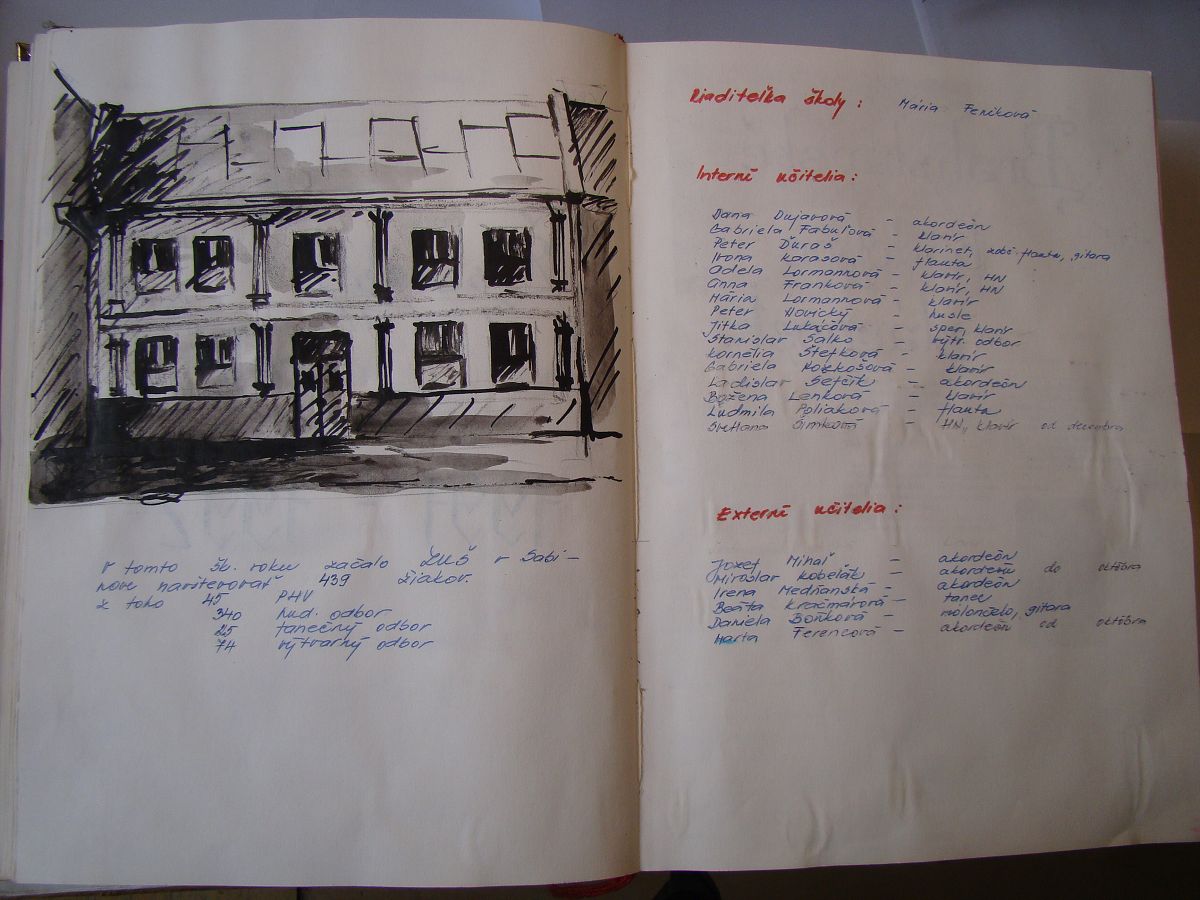 V tomto šk. roku začalo ĽUŠ v Sabi-
nove navštevovať 439 žiakov.
Z toho 45 PHV
340 hud. odbor
25 tanečný odbor
74 výtvarný odbor
Riaditeľka školy: Mária Feníková
Interní učitelia:
Dana Dujavová - akordeón
Gabriela Fabuľová - klavír
Peter Ďuraš - klarinet, zob. flauta, gitara
Ivona Karasová - flauta
Adela Lormannová - klavír, HN
Anna Franková - klavír, HN
Mária Lormannová - klavír
Peter Novický - husle
Jitka Lukáčová - spev, klavír
Stanislav Salko - výtv. odbor
Kornélia Štefková - klavír
Gabriela - klavír
Ladislav Šefčík - akordeón
Božena Lenková - klavír
Ľudmila Poliaková - flauta
Svetlana Šimková - HN, klavír od decembra
Externí učitelia:
Jozef Mihaľ - akordeón
Miroslav Kobeľák - akordeón do októbra
Irena Medňanská - akordeón
Beáta Kračmárová - tanec
Daniela Boňková - violončelo, gitara
Marta Ferencová - akordeón od októbra